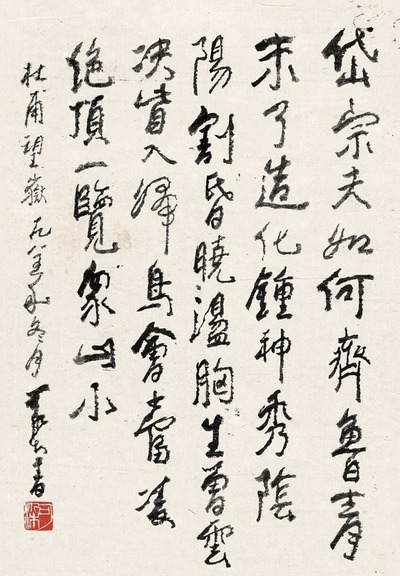 岱宗夫如何齊魯青
未了造化鍾神秀陰
陽割昏曉盪胸生曾雲
决眥入歸鳥會當凌
絶頂一覽衆山小
杜甫望嶽 冬月 書